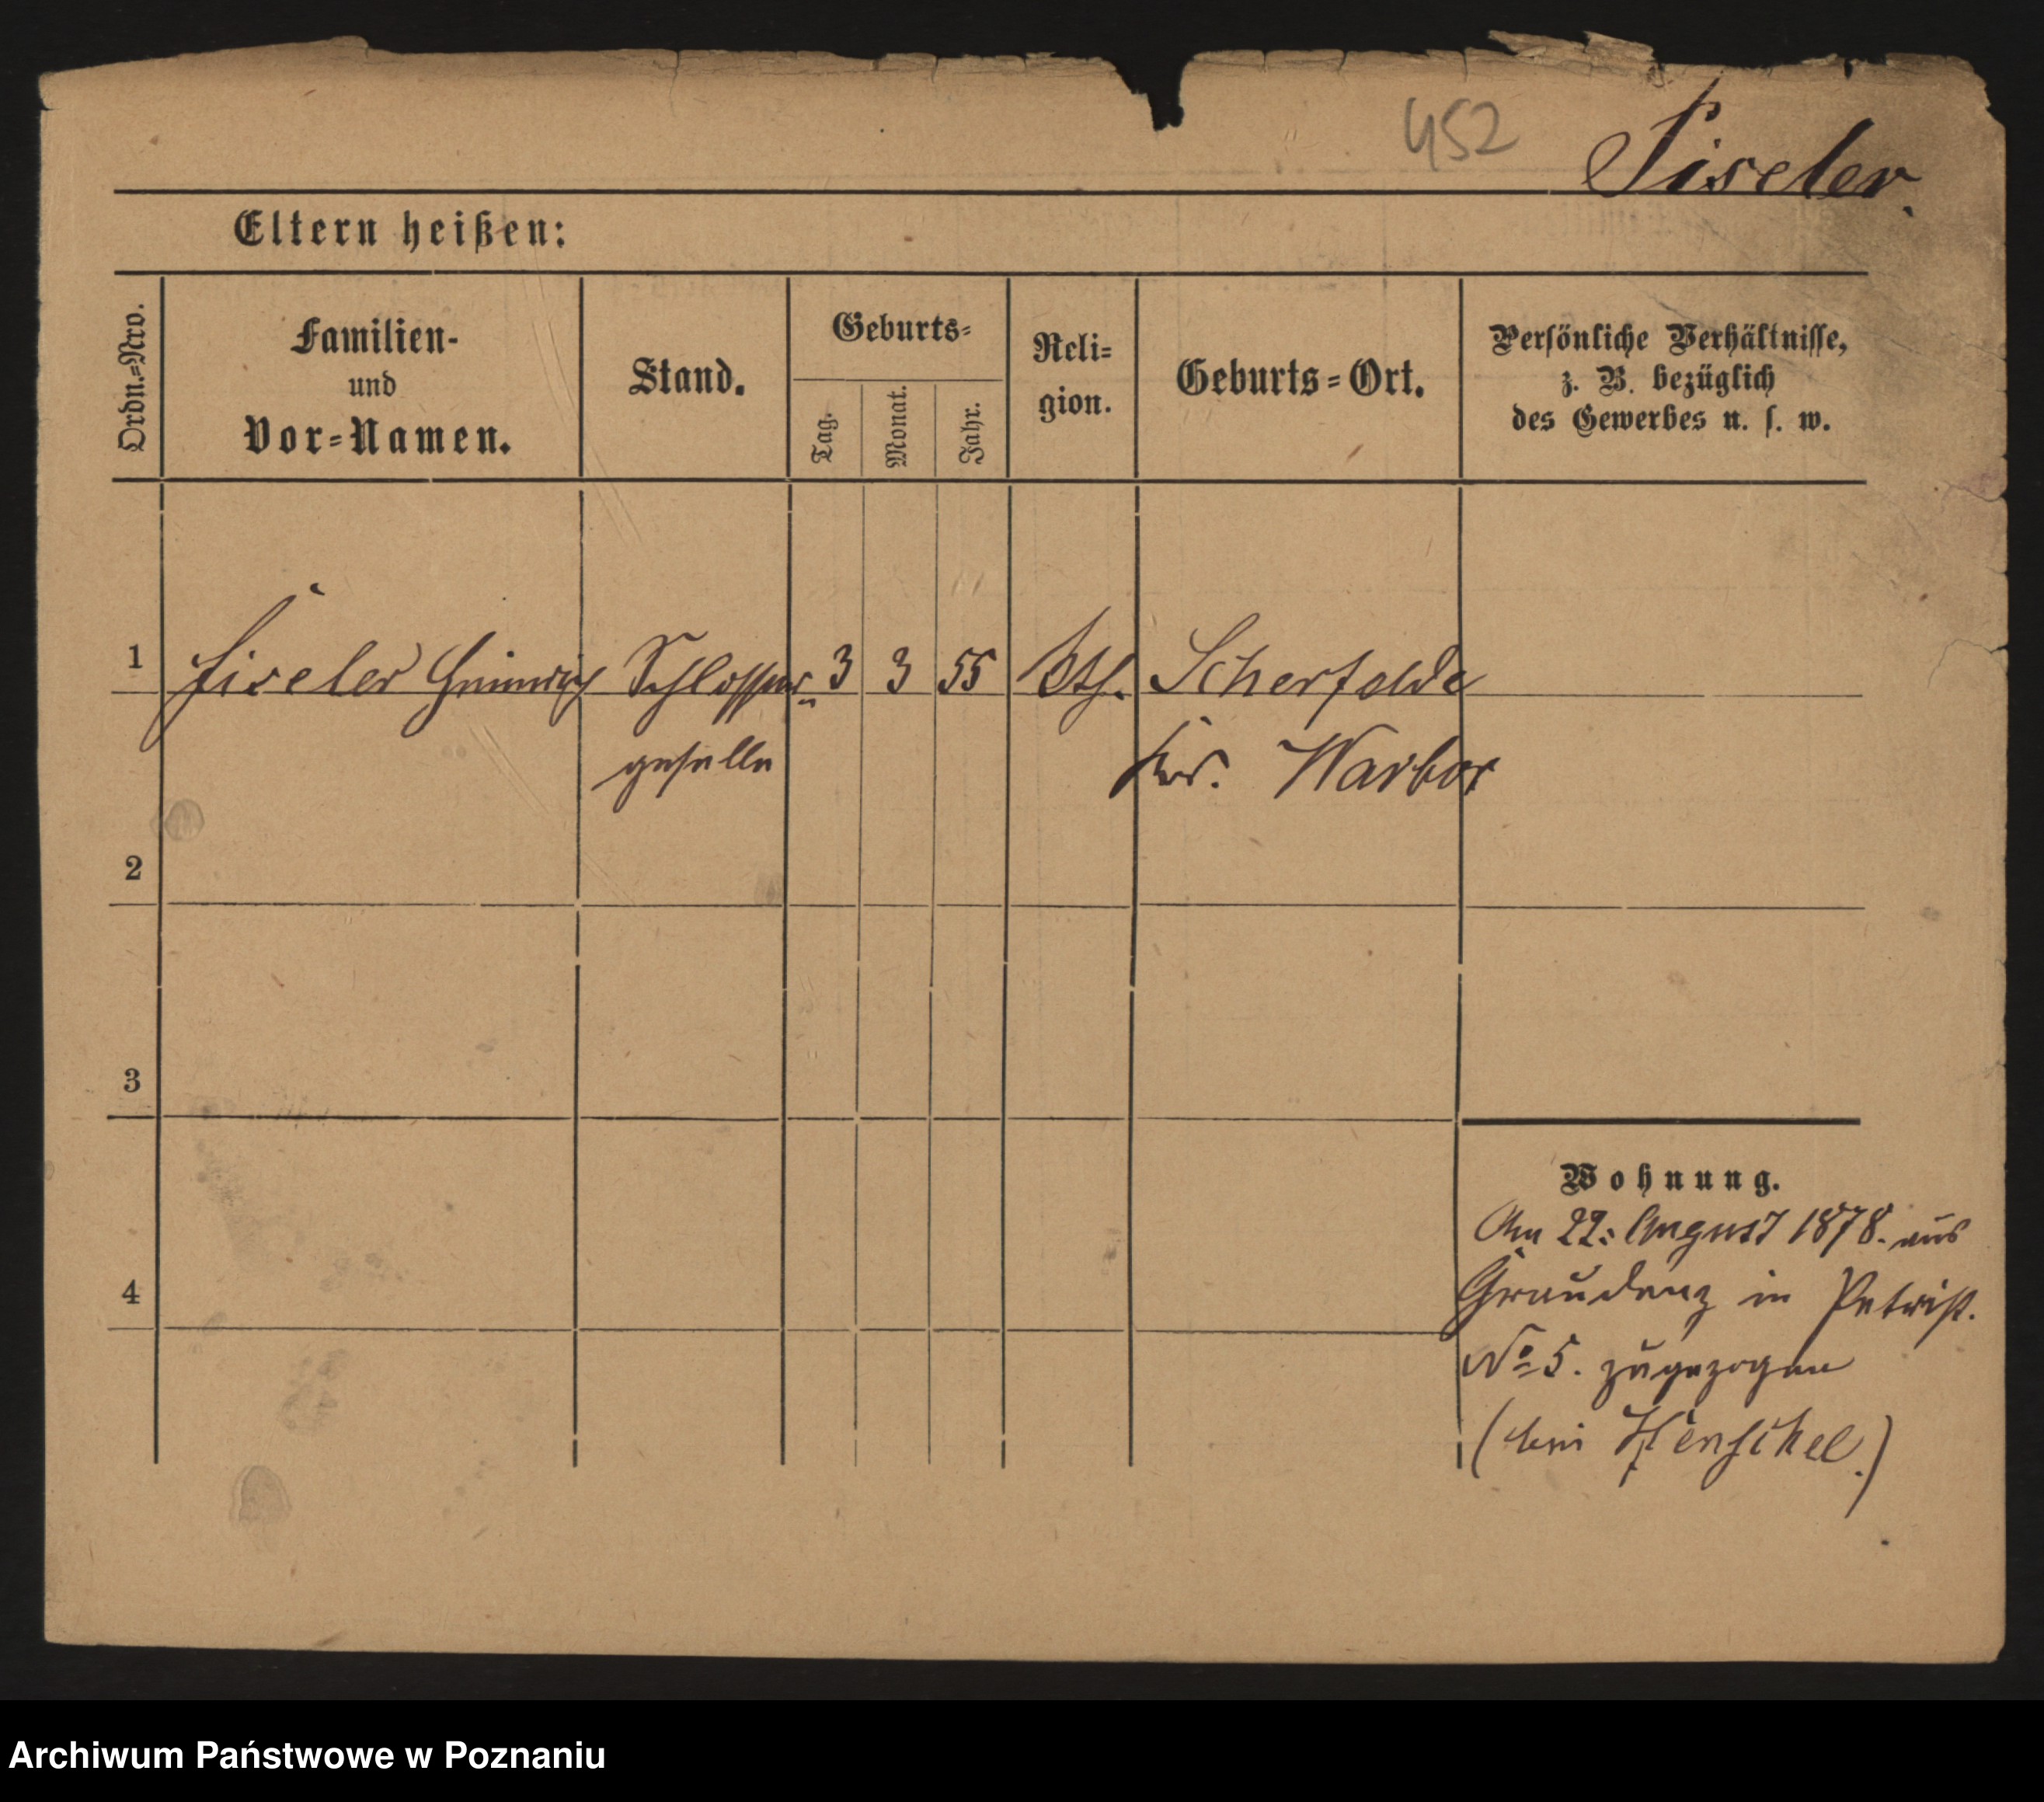 452
Fiseler.
Eltern heißen:
Ordn.=Nro.
Familien-
und
Vor=Namen.
Stand.
Geburts=
Tag.
Monat.
Jahr.
Reli=
gion.
Geburts=Ort.
Persönliche Verhältnisse,
z. B. bezüglich
des Gewerbes u. s. w.
1 Fiseler Heinrich Schlosser 3 3 55 kth. Scherfelde
geselle Krs. Warbor
2
3
4
Wohnung.
Am 22. August 1878. aus
Graudenz in Petrist.
No 5. zugezogen
(bei Henschel.)
Archiwum Państwowe w Poznaniu